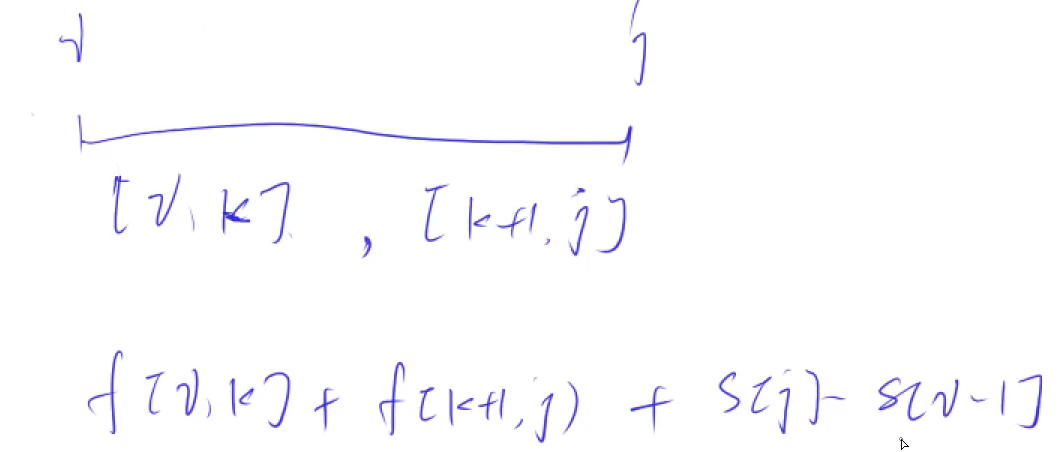 i j
[i,k] , [k+1,j]
f[i,k] + f[k+1,j) + S[j]- S[i-1]